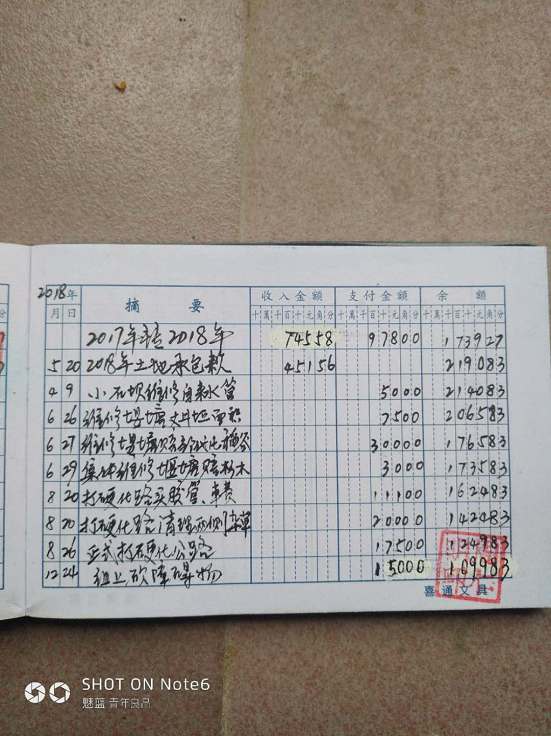 2018年
月 日 摘 要 收入金额 支付金额 余 额
十萬千百十元角分 十萬千百十元角分 十萬千百十元角分
2017年转2018年 74558 97800 173927
5 20 2018年土地承包款 45156 219083
4 9 小石坝维修自来水管 5000 214083
6 26 维修堰塘丈土地面积 7500 206583
6 27 维修堰塘 30000 176583
6 29 集体维修堰塘赔杉木 3000 173583
8 20 打硬化路买胶管、车费 11100 162483
8 20 打硬化路清理两侧杂草 20000 142483
8 26 正式打硬化公路 17500 124983
12 24 组上砍障碍物 15000 109983
喜通文具
SHOT ON Note6
魅蓝 青年良品